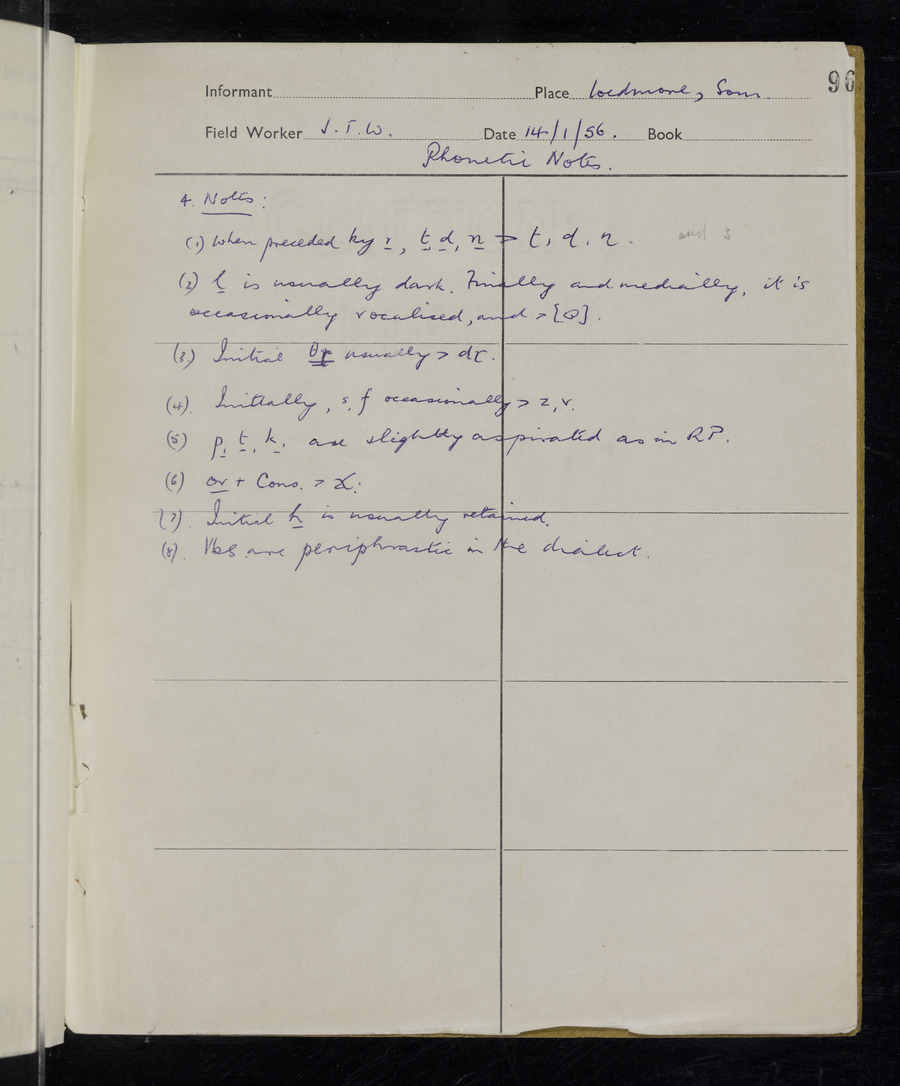 96
Informant Place Wedmore, Som.
Field Worker J.T.W. Date 14/1/56. Book
Phonetic Notes.
4. Notes:
(1) When preceded by ɪ, t, d, n > ʈ, ɖ, ɳ. and s
(2) l is usually dark. Finally and medially, it is
occasionally vocalised, and > [ʊ].
(3) Initial θr usually > dɽ.
(4). Initially, s, f occasionally > z, v.
(5) p, t, k, are slightly aspirated as in RP.
(6) or + Cons. >
(7). Initial h is usually retained.
(8). Vbs are periphrastic in the dialect.